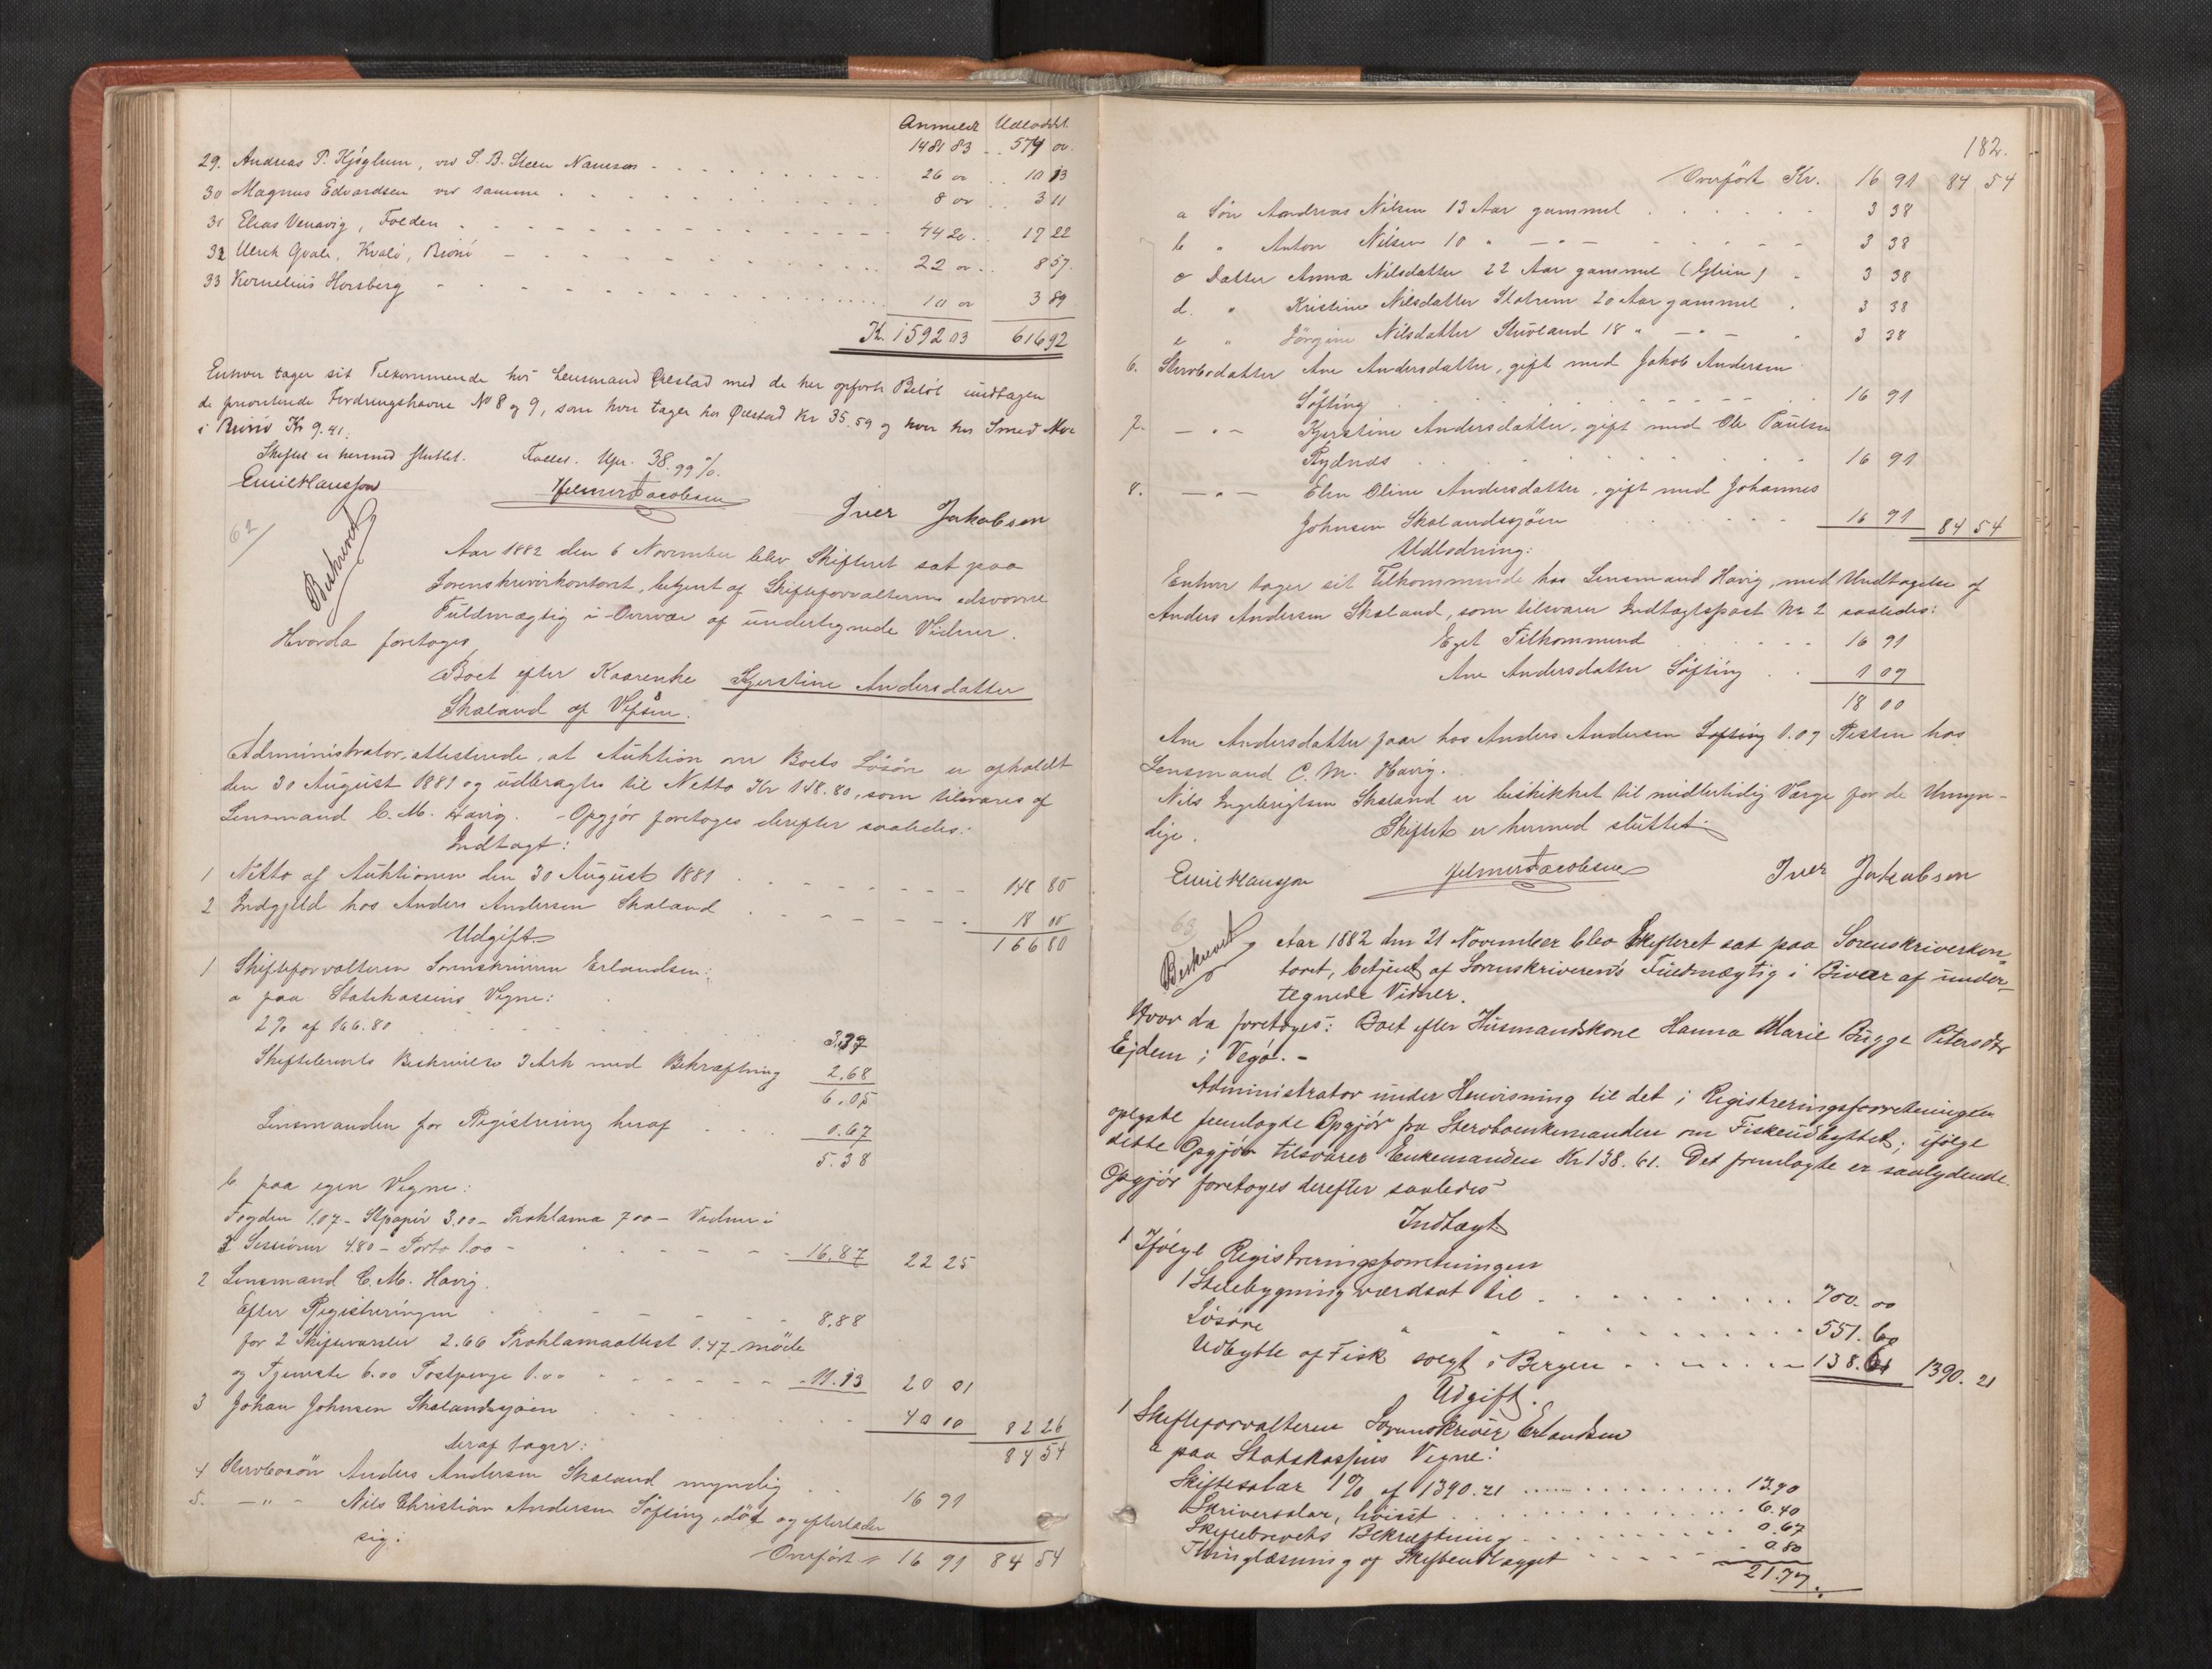 Anmeldt Udloddet
1481 83 .. 574 00.
29. Andreas P. Kjøglum, ved S. B. Steen Namsos - 26 00 .. 10 13
30 Magnus Edvardsen ved samme 8 00 .. 3 11
31 Elias Vennavig, Folden 44 20 .. 17 22
32 Ulrik Qvalø, Kvalø, Brønø 22 00 .. 8 57
33 Kornelius Horsberg 10 00 3 89
Kr. 1592 03 616 92
Enhver tager sit Tilkommende hos Lensmand Qvestad med de her opførte Beløb undtagen
de prioriterede Fordringshavere No 8 og 9, som hver tager hos Qvestad Kr 35.59 og hver hos Smed Moe
i Brønø Kr 9.41.
Skiftet er hermed sluttet. Folles. Upr. 38.99 %.
Emil Hansson Helmer Jacobsen
Iver Jakobsen
62/
Beskrevet
Aar 1882 den 6 November blev Skifteret sat paa
Sorenskriverkontoret, betjent af Skifteforvalterens edsvorne
Fuldmægtig i Overvær af undertegnede Vidner.
Hvorda foretoges
Boet efter Kaarenke Kjerstine Andersdatter
Skaland af Vefsen.
Administrator attesterede, at Auktion over Boets Løsøre er afholdt
den 30 August 1881 og udbragtes til Netto Kr 148.80, som tilsvares af
Lensmand C. M. Havig. - Opgjør foretoges derefter saaledes:
Indtægt:
1 Netto af Auktionen den 30 August 1881 148 80
2 Indgjeld hos Anders Andersen Skaland 18 00
166 80
Udgift
1 Skifteforvalteren Sorenskriver Erlandsen:
a paa Statskassens Vegne:
2 % af 166.80 3.37
Skiftebrevets Beskrivelse 3 Ark med Bekræftning 2.68
6.05
Lensmanden for Registrering heraf 0.67
5.38
b. paa egen Vegne:
Fogden 1.07 - Stpapir 3.00 - Proklama 7.00 - Vidner i
3 Sessioner 4.80 - Porto 1.00 - 16.87 22 25
2 Lensmand C. M. Havig.
Efter Registreringen 8.88
for 2 Skiftevarsler 2.66 Proklamaattest 1.47 - møde
og Tjeneste 6.00 Postpenge 1.00 11.13 20 01
3 Johan Johnsen Skalandssjøen 40 00 82 26
84 54
deraf tager:
4 Stervbosøn Anders Andersen Skaland myndig .. 16 91
5. — " - Nils Christian Andersen Søfting, død og efterlader
sig:
Overført " 16 91 84 54
182.
Overført Kr. 16 91 84 54
a Søn Andreas Nilsen 13 Aar gammel 3 38
b " Anton Nilsen 10 " — " — 3 38
c Datter Anna Nilsdatter 22 Aar gammel (Glein) 3 38
d. " Kristine Nilsdatter Slotrem 20 Aar gammel 3 38
e " Jørgine Nilsdatter Støvland 18 " — " — 3 38
6. Stervbodatter Ane Andersdatter, gift med Jakob Andersen
Søfting 16 91
7. — " — Kjerstine Andersdatter, gift med Ole Paulsen
Rydnæs 16 91
8. — " — Elen Oline Andersdatter, gift med Johannes
Johnsen Skalandssjøen 16 91 84 54
Udlodning:
Enhver tager sit Tilkommende hos Lensmand Havig, med Undtagelse af
Anders Andersen Skaland, som tilsvarer Indtægtspost No 2 saaledes:
Eget Tilkommend 16 91
Ane Andersdatter Søfting 1 09
18 00
Ane Andersdatter faar hos Anders Andersen Søfting 1.09 Resten hos
Lensmand C. M. Havig.
Nils Ingebrigtsen Skaland er beskikket til midlertidig Værge for de Umyn-
dige. Skiftet er hermed sluttet.
Emil Hansson Helmer Jacobsen Iver Jakobsen
63
Beskrevet
Aar 1882 den 21 November blev Skifteret sat paa Sorenskriverkon-
toret, betjent af Sorenskriverens Fuldmægtig i Bivær af under-
tegnede Vidner.
Hvor da foretoges: Boet efter Husmandskone Hanna Marie Bugge Petersdtr
Ejdem i Vegø. -
Administrator under Henvisning til det i Registreringsforretningen
oplyste fremlagde Opgjør fra Stervboenkemanden om Fiskeudbyttet; ifølge
dette Opgjør tilsvarer Enkemanden Kr 138.61. Det fremlagte er saalydende.
Opgjør foretoges derefter saaledes
Indtægt
1 Ifølge Registreringsforretningen
1 Stuebygning værdsat til 700.00
Løsøre " " 551.60
Udbytte af Fisk solgt i Bergen 138.61 1390.21
Udgift.
1 Skifteforvalteren Sorenskriver Erlandsen
a paa Statskassens Vegne:
Skiftesalær 1 % af 1390.21 13.90
Skriversalær, høiest 6.40
Skiftebrevets Bekræftning 0.67
Thinglæsning af Skifteudlægget 0.80
21.77